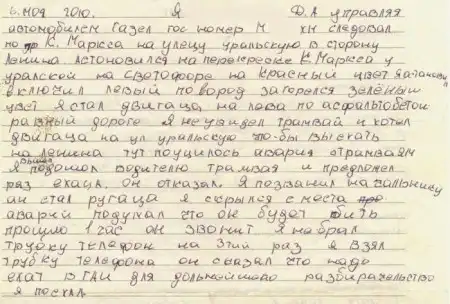 6. ноя 2010. Я Д.А управляя
автомобилем Газел гос номер М хн следовал
по пр К. Маркса на улецу уральскую в сторону
Ленина Астоновился на перекрёске К. Маркса у
уральской на светофоре на красный цвет я
включил левый повород загорелся зелёный
цвет я стал двигаца на лева по асфальтобетон
равный дороге я не увидел трамвай и хотел
двигаца на ул уральскую что-бы выехать
на Ленина тут поуцилось авария стромваям
Я вышел подошол водителю трамвая и предложел
раз ехаца. он отказал. я позванил начальнику
он стал ругаца я скрылся с места
аварий подумал что он будет бить
прошло 1 час он звонит я не брал
трубку телефон на 3тий раз я взял
трубку телефона он сказал что надо
ехат в ГАИ для дольнейшово разбирательство
я поехал.